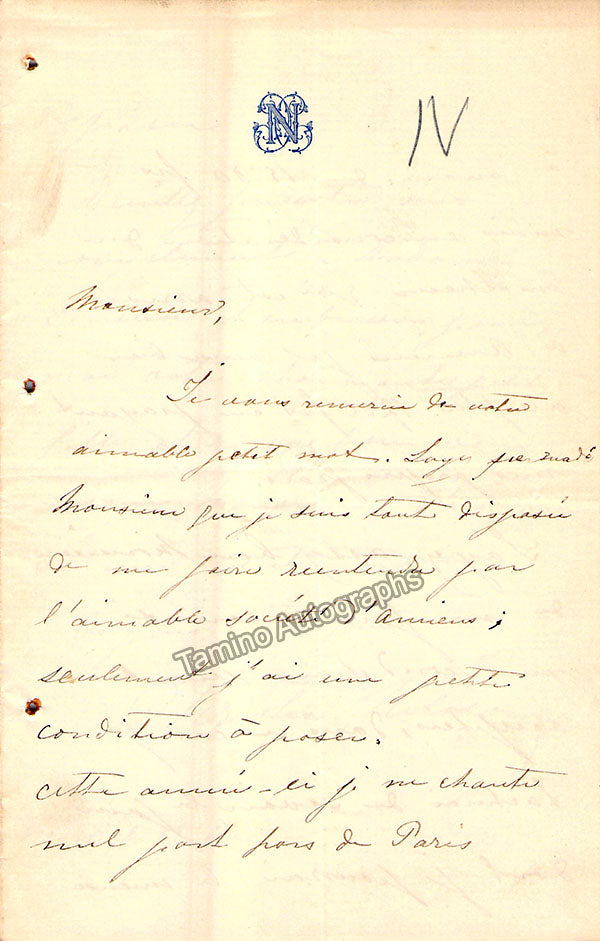 N
IV
Monsieur,
Je vous remercie de votre
aimable petit mot. Soyez persuadé
Monsieur que je suis tout disposée
de me faire reentendre par
l'aimable société d'Amiens;
seulement j'ai une petite
condition à poser.
cette année-ci je ne chante
nul part hors de Paris
Tamino Autographs